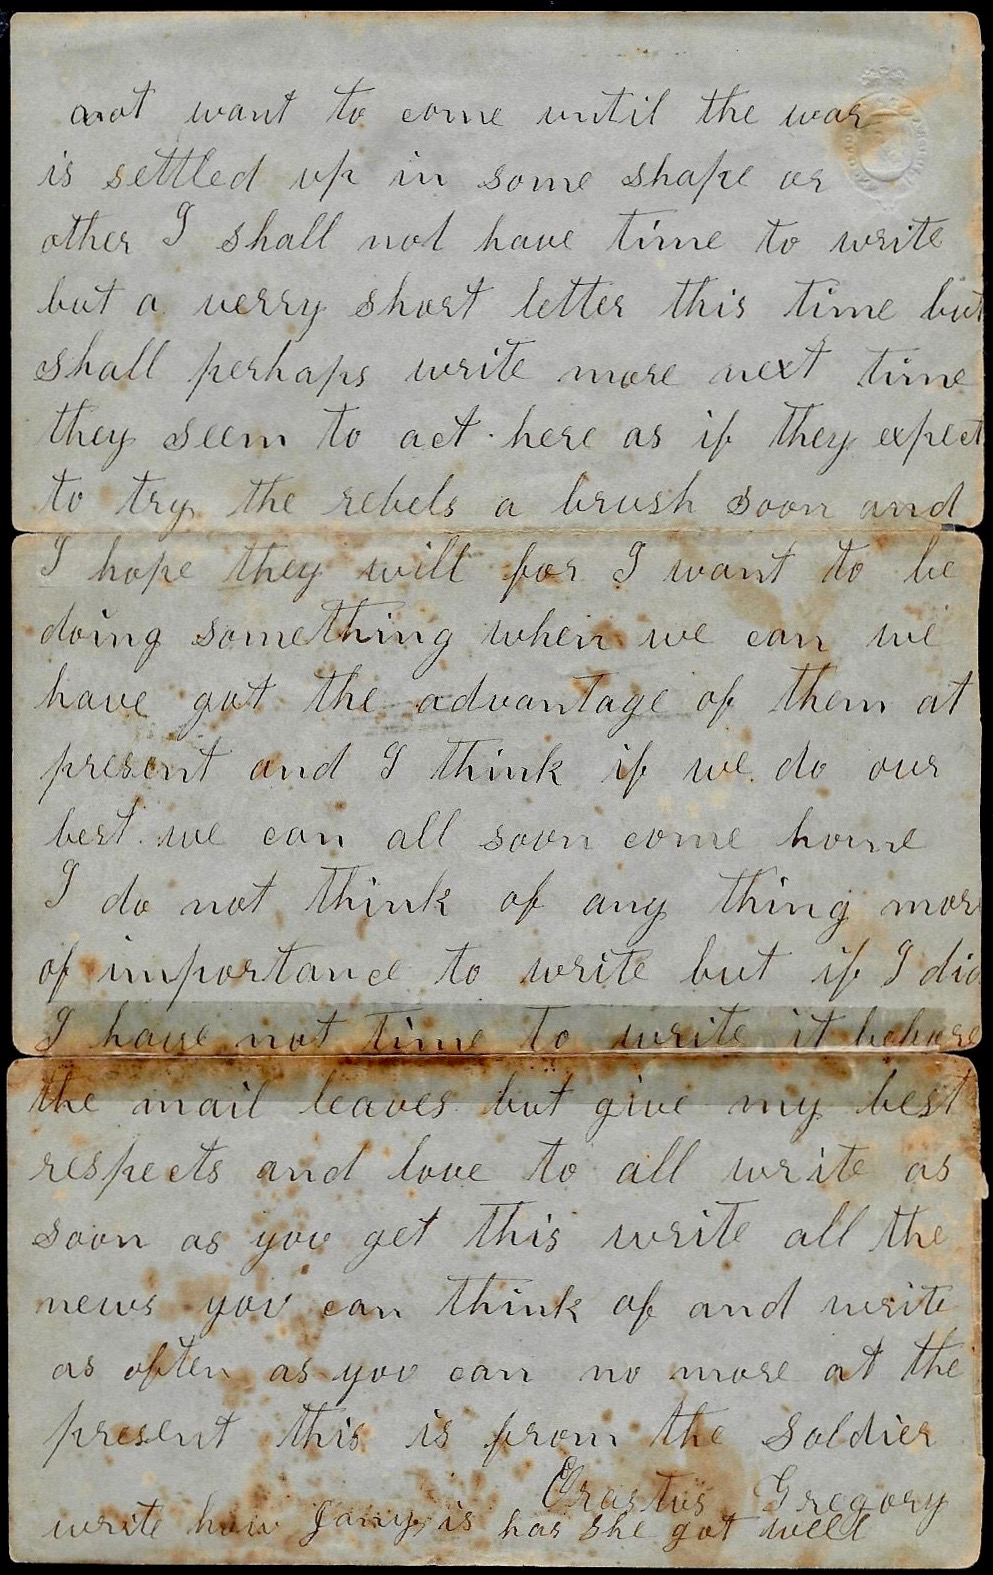 not want to come until the war
is settled up in some shape or
other I shall not have time to write
but a verry short letter this time but
shall perhaps write more next time
they seem to act here as if they expect
to try the rebels a brush soon and
I hope they will for I want to be
doing something when we can we
have got the advantage of them at
present and I think if we do our
best we can all soon come home
I do not think of any thing more
of importance to write but if I did
I have not time to write it before
the mail leaves but give my best
respects and love to all write as
soon as you get this write all the
news you can think of and write
as often as you can no more at the
present this is from the Soldier
Erastus Gregory
write how Jany is has she got well